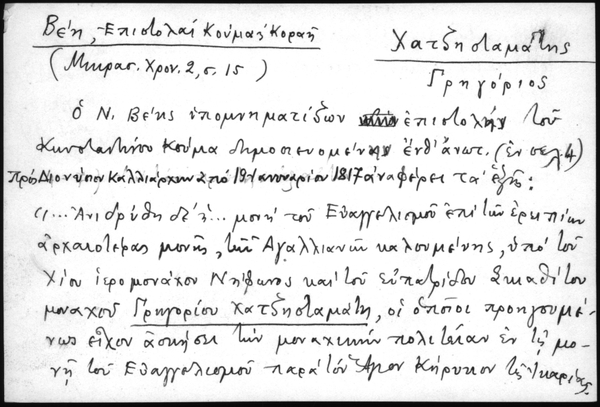 Βέη, - Ἐπιστολαί Κούμα-Κοραῆ
(Μικρασ. Χρον. 2, σ. 15)
Χατζησταμάτης
Γρηγόριος
Ὁ Ν. Βέης ὑπομνηματίζων ἐπιστολήν τοῦ
Κωνσταντίνου Κούμα δημοσιευομένην ἔνθ' ἄνωτ. (ἐν σελ. 4)
πρός Διονύσιον Καλλιάρχην ἀπό 19 Ἰανουαρίου 1817 ἀναφέρει τά ἑξῆς:
"... Ἀνιδρύθη δέ ἡ... μονή τοῦ Εὐαγγελισμοῦ ἐπί τῶν ἐρειπίων
ἀρχαιοτέρας μονῆς, τῶν Ἀγαλλιανῶν καλουμένης, ὑπό τοῦ
Χίου ἱερομονάχου Νήφωνος καί τοῦ εὐπατρίδου Σκιαθίτου
μοναχοῦ Γρηγορίου Χατζησταμάτη, οἱ ὁποῖοι προηγουμέ-
νως εἶχον ἀσκήσει τήν μοναχικήν πολιτείαν ἐν τῇ μο-
νῇ τοῦ Εὐαγγελισμοῦ παρά τόν Ἅγιον Κήρυκον τῆς Ἰκαρίας.